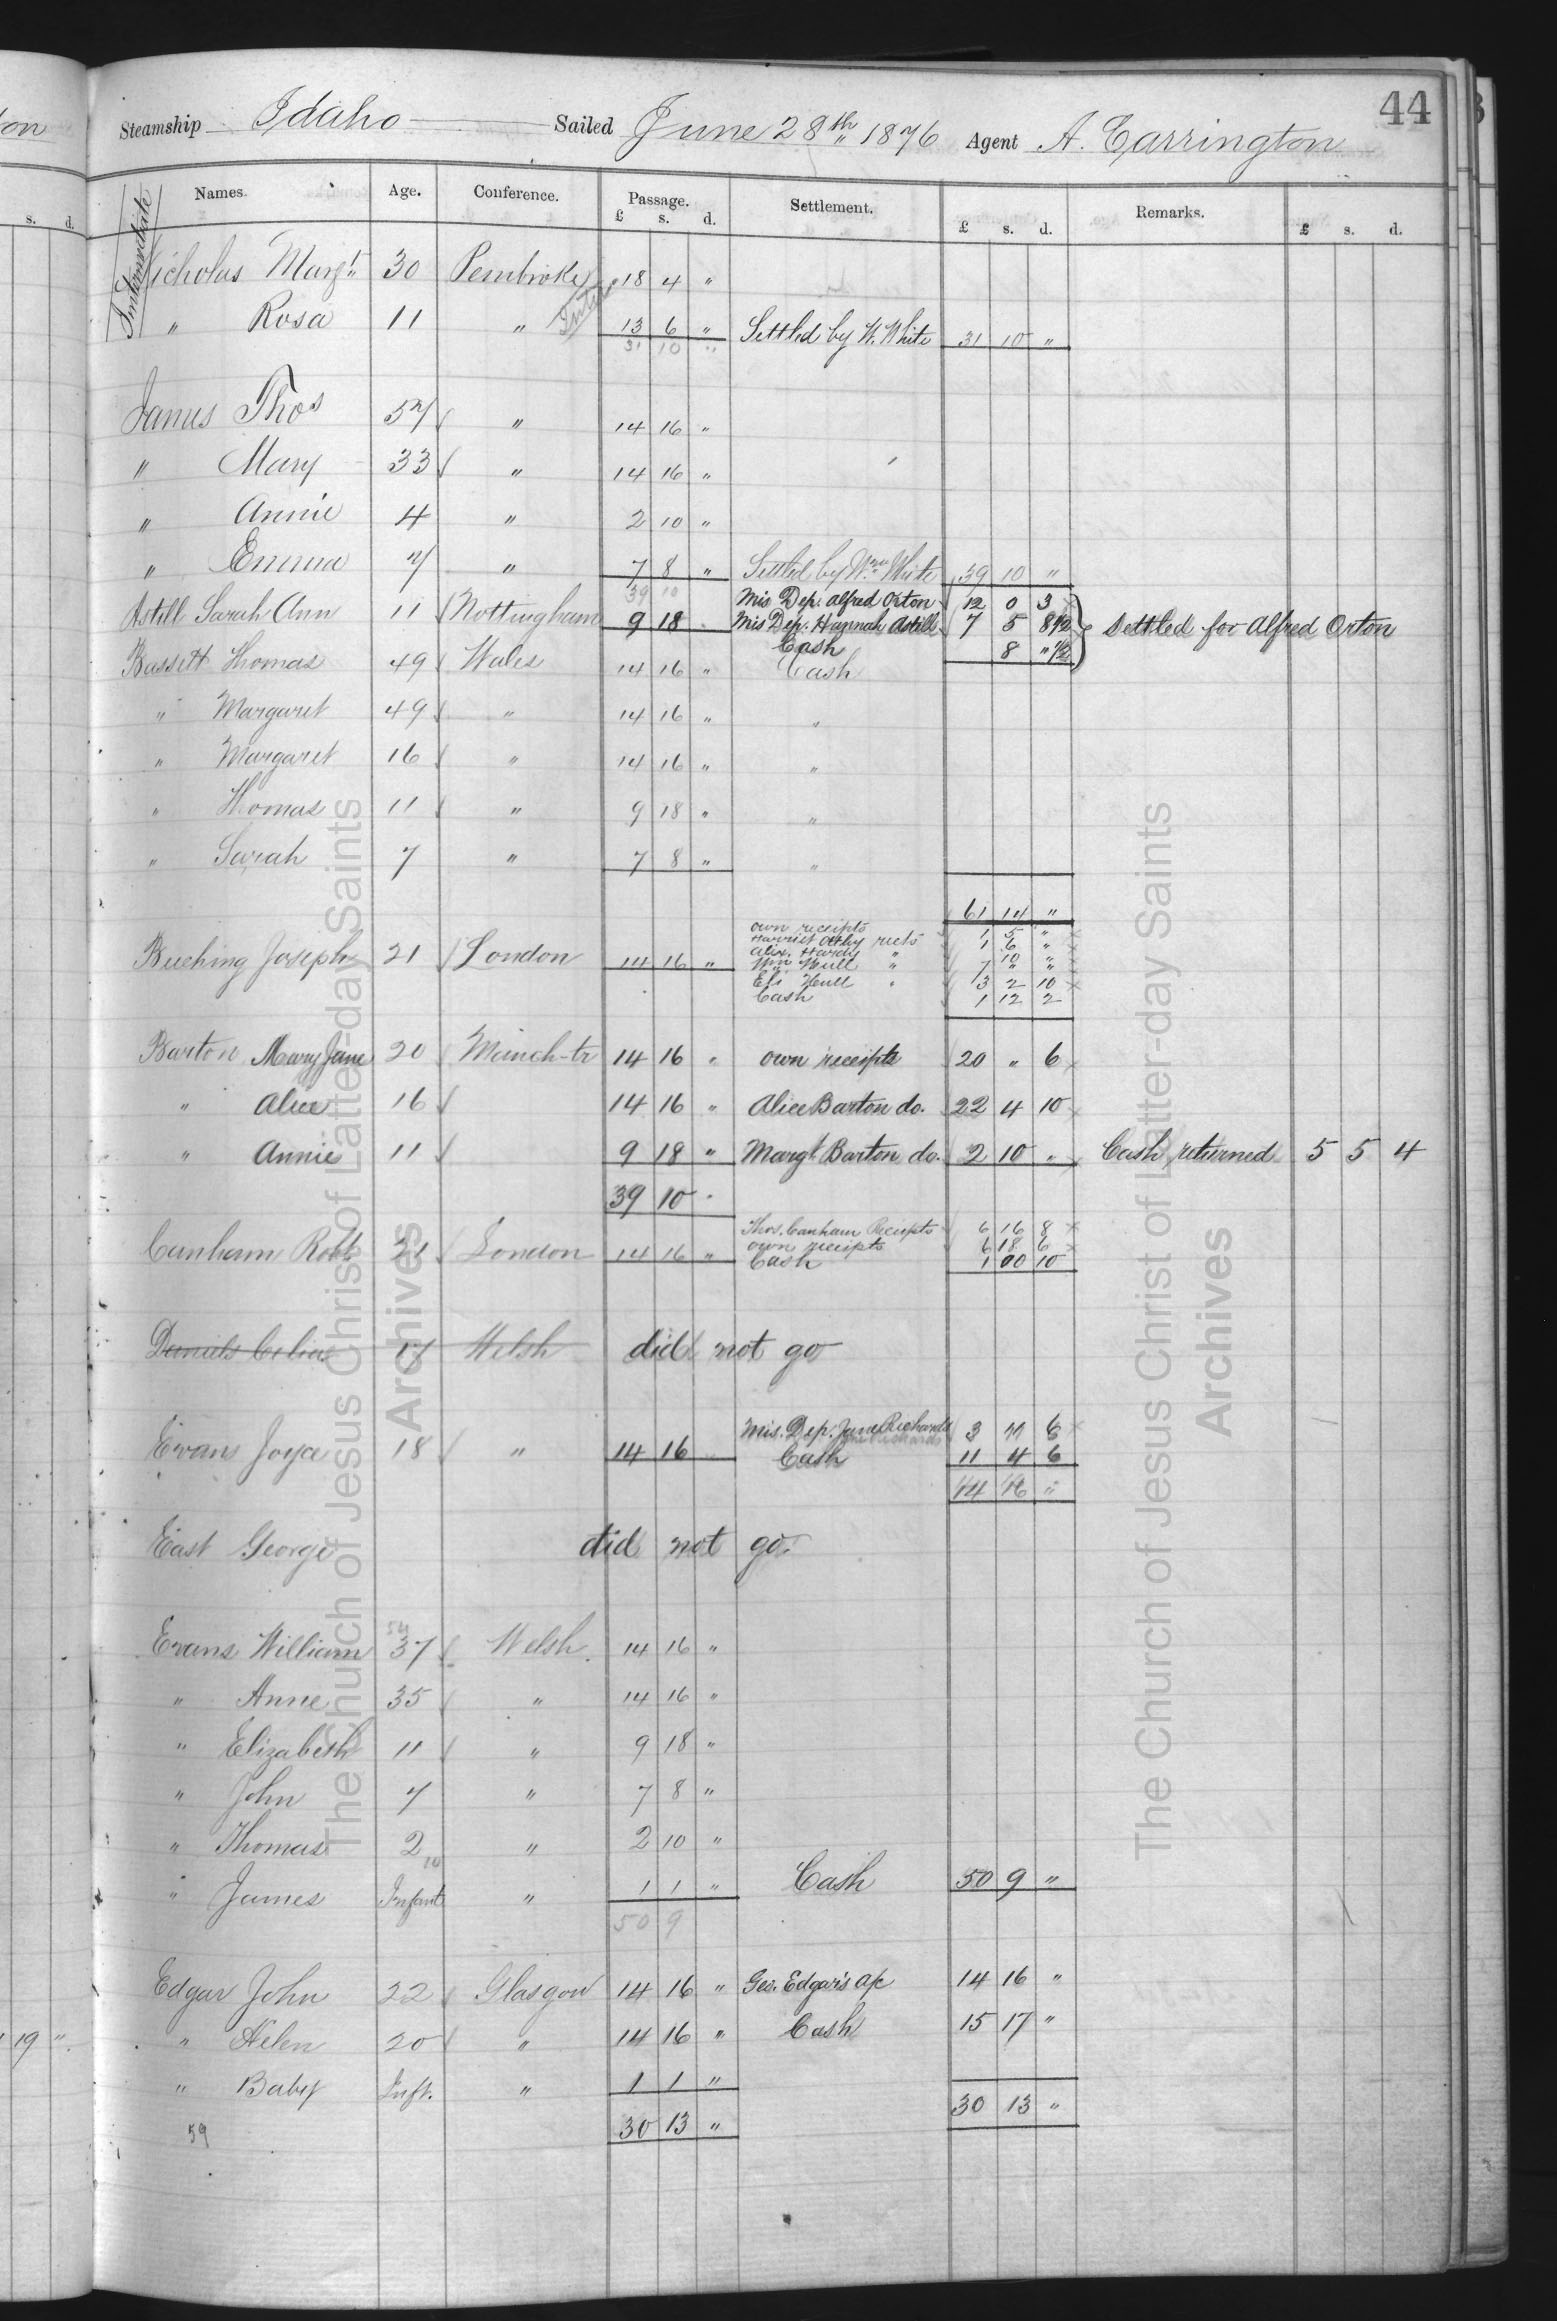 44
Steamship Idaho Sailed June 28th 1876 Agent A. Carrington
Names. Age. Conference. Passage. Settlement. Remarks.
£ s. d. £ s. d. £ s. d.
Intermediate
Nicholas Margt 30 Pembroke 18 4 "
" Rosa 11 " 13 6 " Settled by W. White 31 10 "
31 10 "
Janus Thos 57 " 14 16 "
" Mary 33 " 14 16 "
" Annie 4 " 2 10 "
" Emma 7 " 7 8 " Settled by Wm White 39 10 "
39 10
Mis Dep. Alfred Orton 12 0 3
Astill Sarah Ann 11 Nottingham 9 18 Mis Dep. Hannah Astill 7 5 8 1/2 Settled for Alfred Orton
Cash 8 " 1/2
Bassett Thomas 49 Wales 14 16 " Cash
" Margaret 49 " 14 16 " "
" Margaret 16 " 14 16 " "
" Thomas 11 " 9 18 " "
" Sarah 7 " 7 8 " "
61 14 "
own receipts 1 5 "
Harriet rects 1 6 "
Alex. Hardy " 10 "
Bueching Joseph 21 London 14 16 " Wm Hull " 7 " "
Eli Hull " 3 2 10
Cash 1 12 2
Barton Mary Jane 20 Manch-tr 14 16 " own receipts 20 " 6
" Alice 16 14 16 " Alice Barton do. 22 4 10
" Annie 11 9 18 " Margt Barton do. 2 10 " Cash returned 5 5 4
39 10 "
Thos. Canham Receipts 6 16 8
own receipts 6 18 6
Canham Robt 21 London 14 16 " Cash 1 00 10
Daniels 17 Welsh did not go
Mis. Dep. Jane Richards 3 11 6
Evans Joyce 18 " 14 16 Cash 11 4 6
14 16 "
East George did not go.
54
Evans William 37 Welsh 14 16 "
" Anne 35 " 14 16 "
" Elizabeth 11 " 9 18 "
" John 7 " 7 8 "
" Thomas 2 " 2 10 "
10
" James Infant " 1 1 " Cash 50 9 "
50 9
Edgar John 22 Glasgow 14 16 " Geo. Edgar's a/c 14 16 "
" Helen 20 " 14 16 " Cash 15 17 "
" Baby Inft. " 1 1 "
30 13 " 30 13 "
59
19 "
The Church of Jesus Christ of Latter-day Saints
Archives
The Church of Jesus Christ of Latter-day Saints
Archives